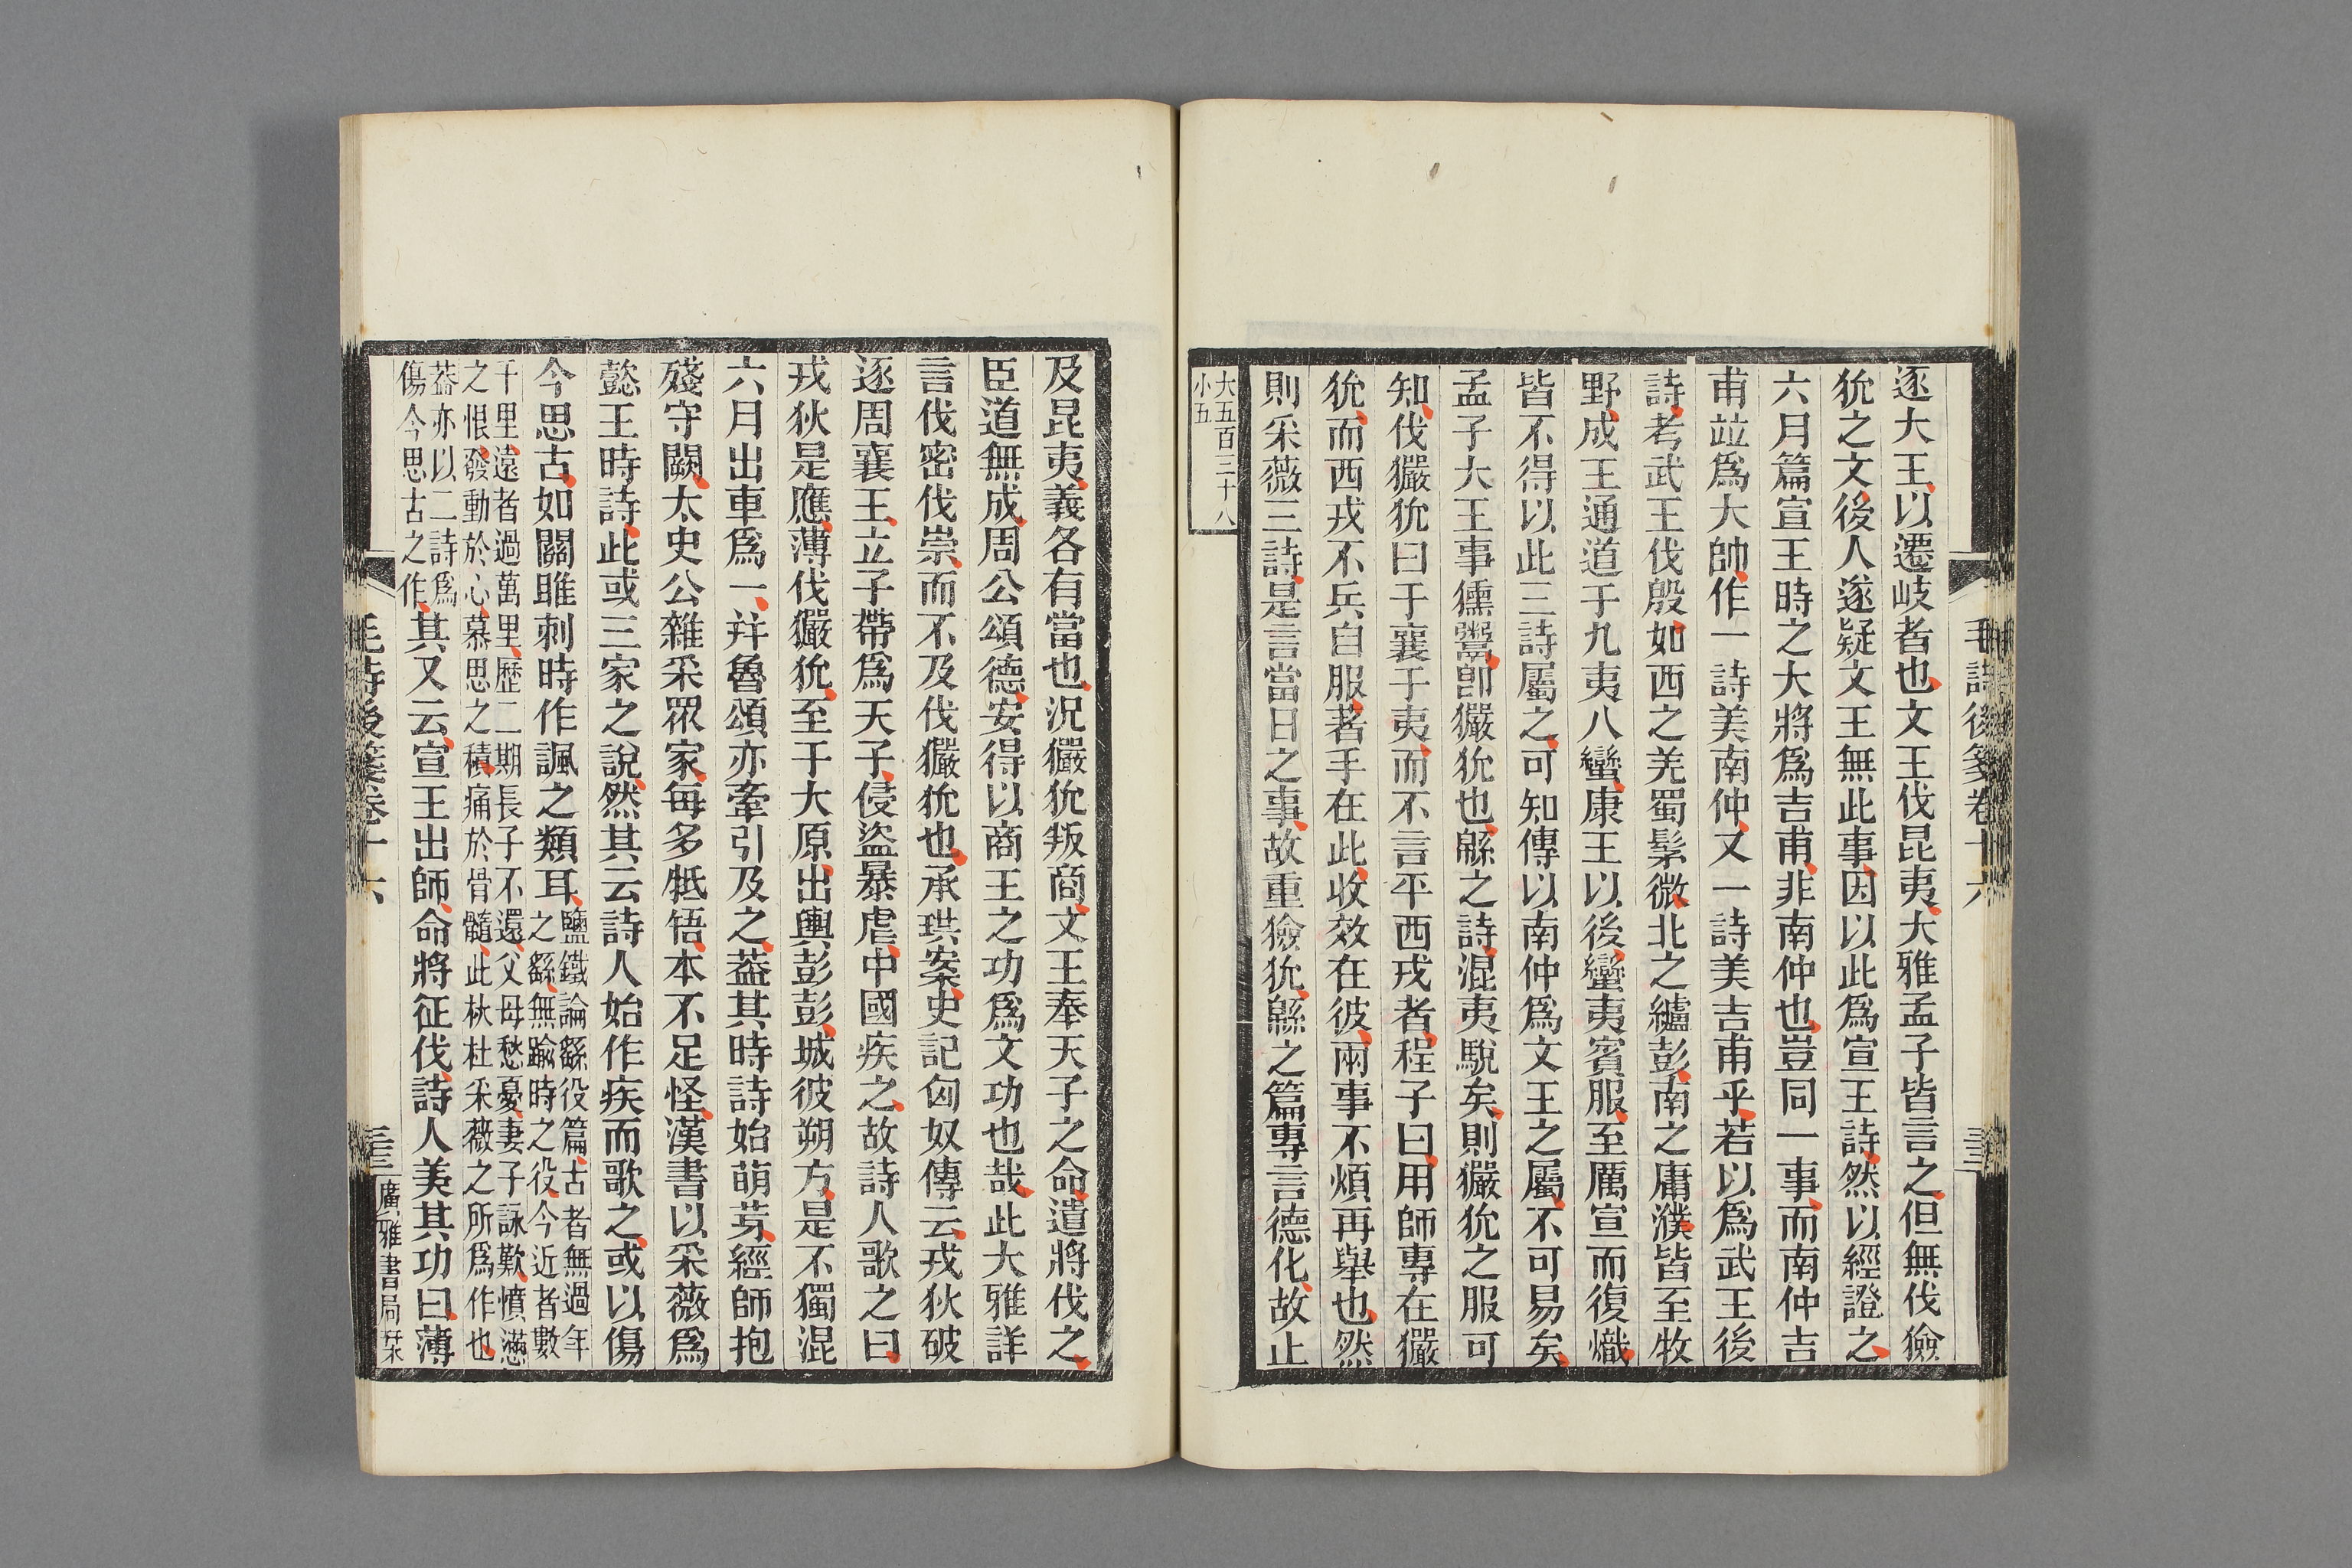 逐大王以遷岐者也文王伐昆夷大雅孟子皆言之但無伐獫
狁之文後人遂疑文王無此事因以此為宣王詩然以經證之
六月篇宣王時之大將為吉甫非南仲也豈同一事而南仲吉
甫竝為大帥作一詩美南仲又一詩美吉甫乎若以為武王後
詩考武王伐殷如西之羌蜀髳微北之纑彭南之庸濮皆至牧
野成王通道于九夷八蠻康王以後蠻夷賓服至厲宣而復熾
皆不得以此三詩屬之可知傳以南仲為文王之屬不可易矣
孟子大王事獯鬻卽玁狁也緜之詩混夷駾矣則玁狁之服可
知伐玁狁曰于襄于夷而不言平西戎者程子曰用師專在玁
狁而西戎不兵自服著手在此收效在彼兩事不煩再舉也然
則采薇三詩是言當日之事故重獫狁緜之篇專言德化故止
大五百三十八
小五
毛詩後箋卷十六
三十三
及昆夷義各有當也況玁狁叛商文王奉天子之命遣將伐之
臣道無成周公頌德安得以商王之功為文功也哉此大雅詳
言伐密伐崇而不及伐玁狁也承珙案史記匈奴傳云戎狄破
逐周襄王立子帶為天子侵盜暴虐中國疾之故詩人歌之曰
戎狄是應薄伐玁狁至于大原出輿彭彭城彼朔方是不獨混
六月出車為一并魯頌亦牽引及之葢其時詩始萌芽經師抱
殘守闕太史公雜采眾家每多牴牾本不足怪漢書以采薇為
懿王時詩此或三家之說然其云詩人始作疾而歌之或以傷
今思古如關雎刺時作諷之類耳鹽鐵論繇役篇古者無過年
之繇無踰時之役今近者數
千里遠者過萬里歷二期長子不還父母愁憂妻子詠歎憤懣
之恨發動於心慕思之積痛於骨髓此杕杜采薇之所為作也
葢亦以二詩為
傷今思古之作其又云宣王出師命將征伐詩人美其功曰薄
毛詩後箋卷十六
三十三
廣雅書局栞